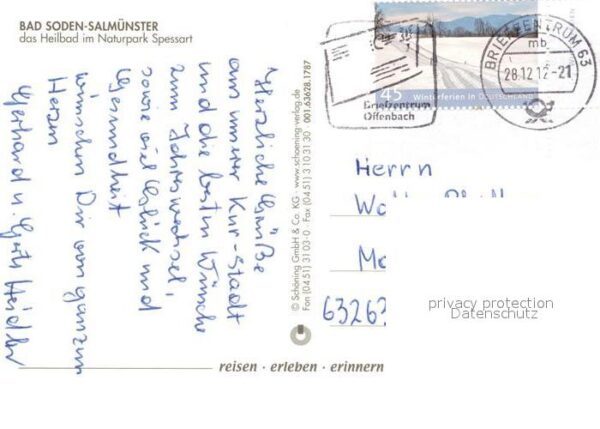 BAD SODEN-SALMÜNSTER
das Heilbad im Naturpark Spessart
Herzliche Grüße
aus unserer Kur-Stadt
und die besten Wünsche
zum Jahreswechsel,
sowie viel Glück und
Gesundheit
wünschen Dir von ganzem
Herzen
Gerhard u.
© Schöning GmbH & Co. KG · www.schoening-verlag.de
Fon (04 51) 31 03-0 · Fax (04 51) 3 10 31 30 001.63628.1787
45 Winterferien in DEUTSCHLAND
Briefzentrum
Offenbach
BRIEFZENTRUM 63
mb
28.12.12-21
Herrn
6326
privacy protection
Datenschutz
reisen · erleben · erinnern